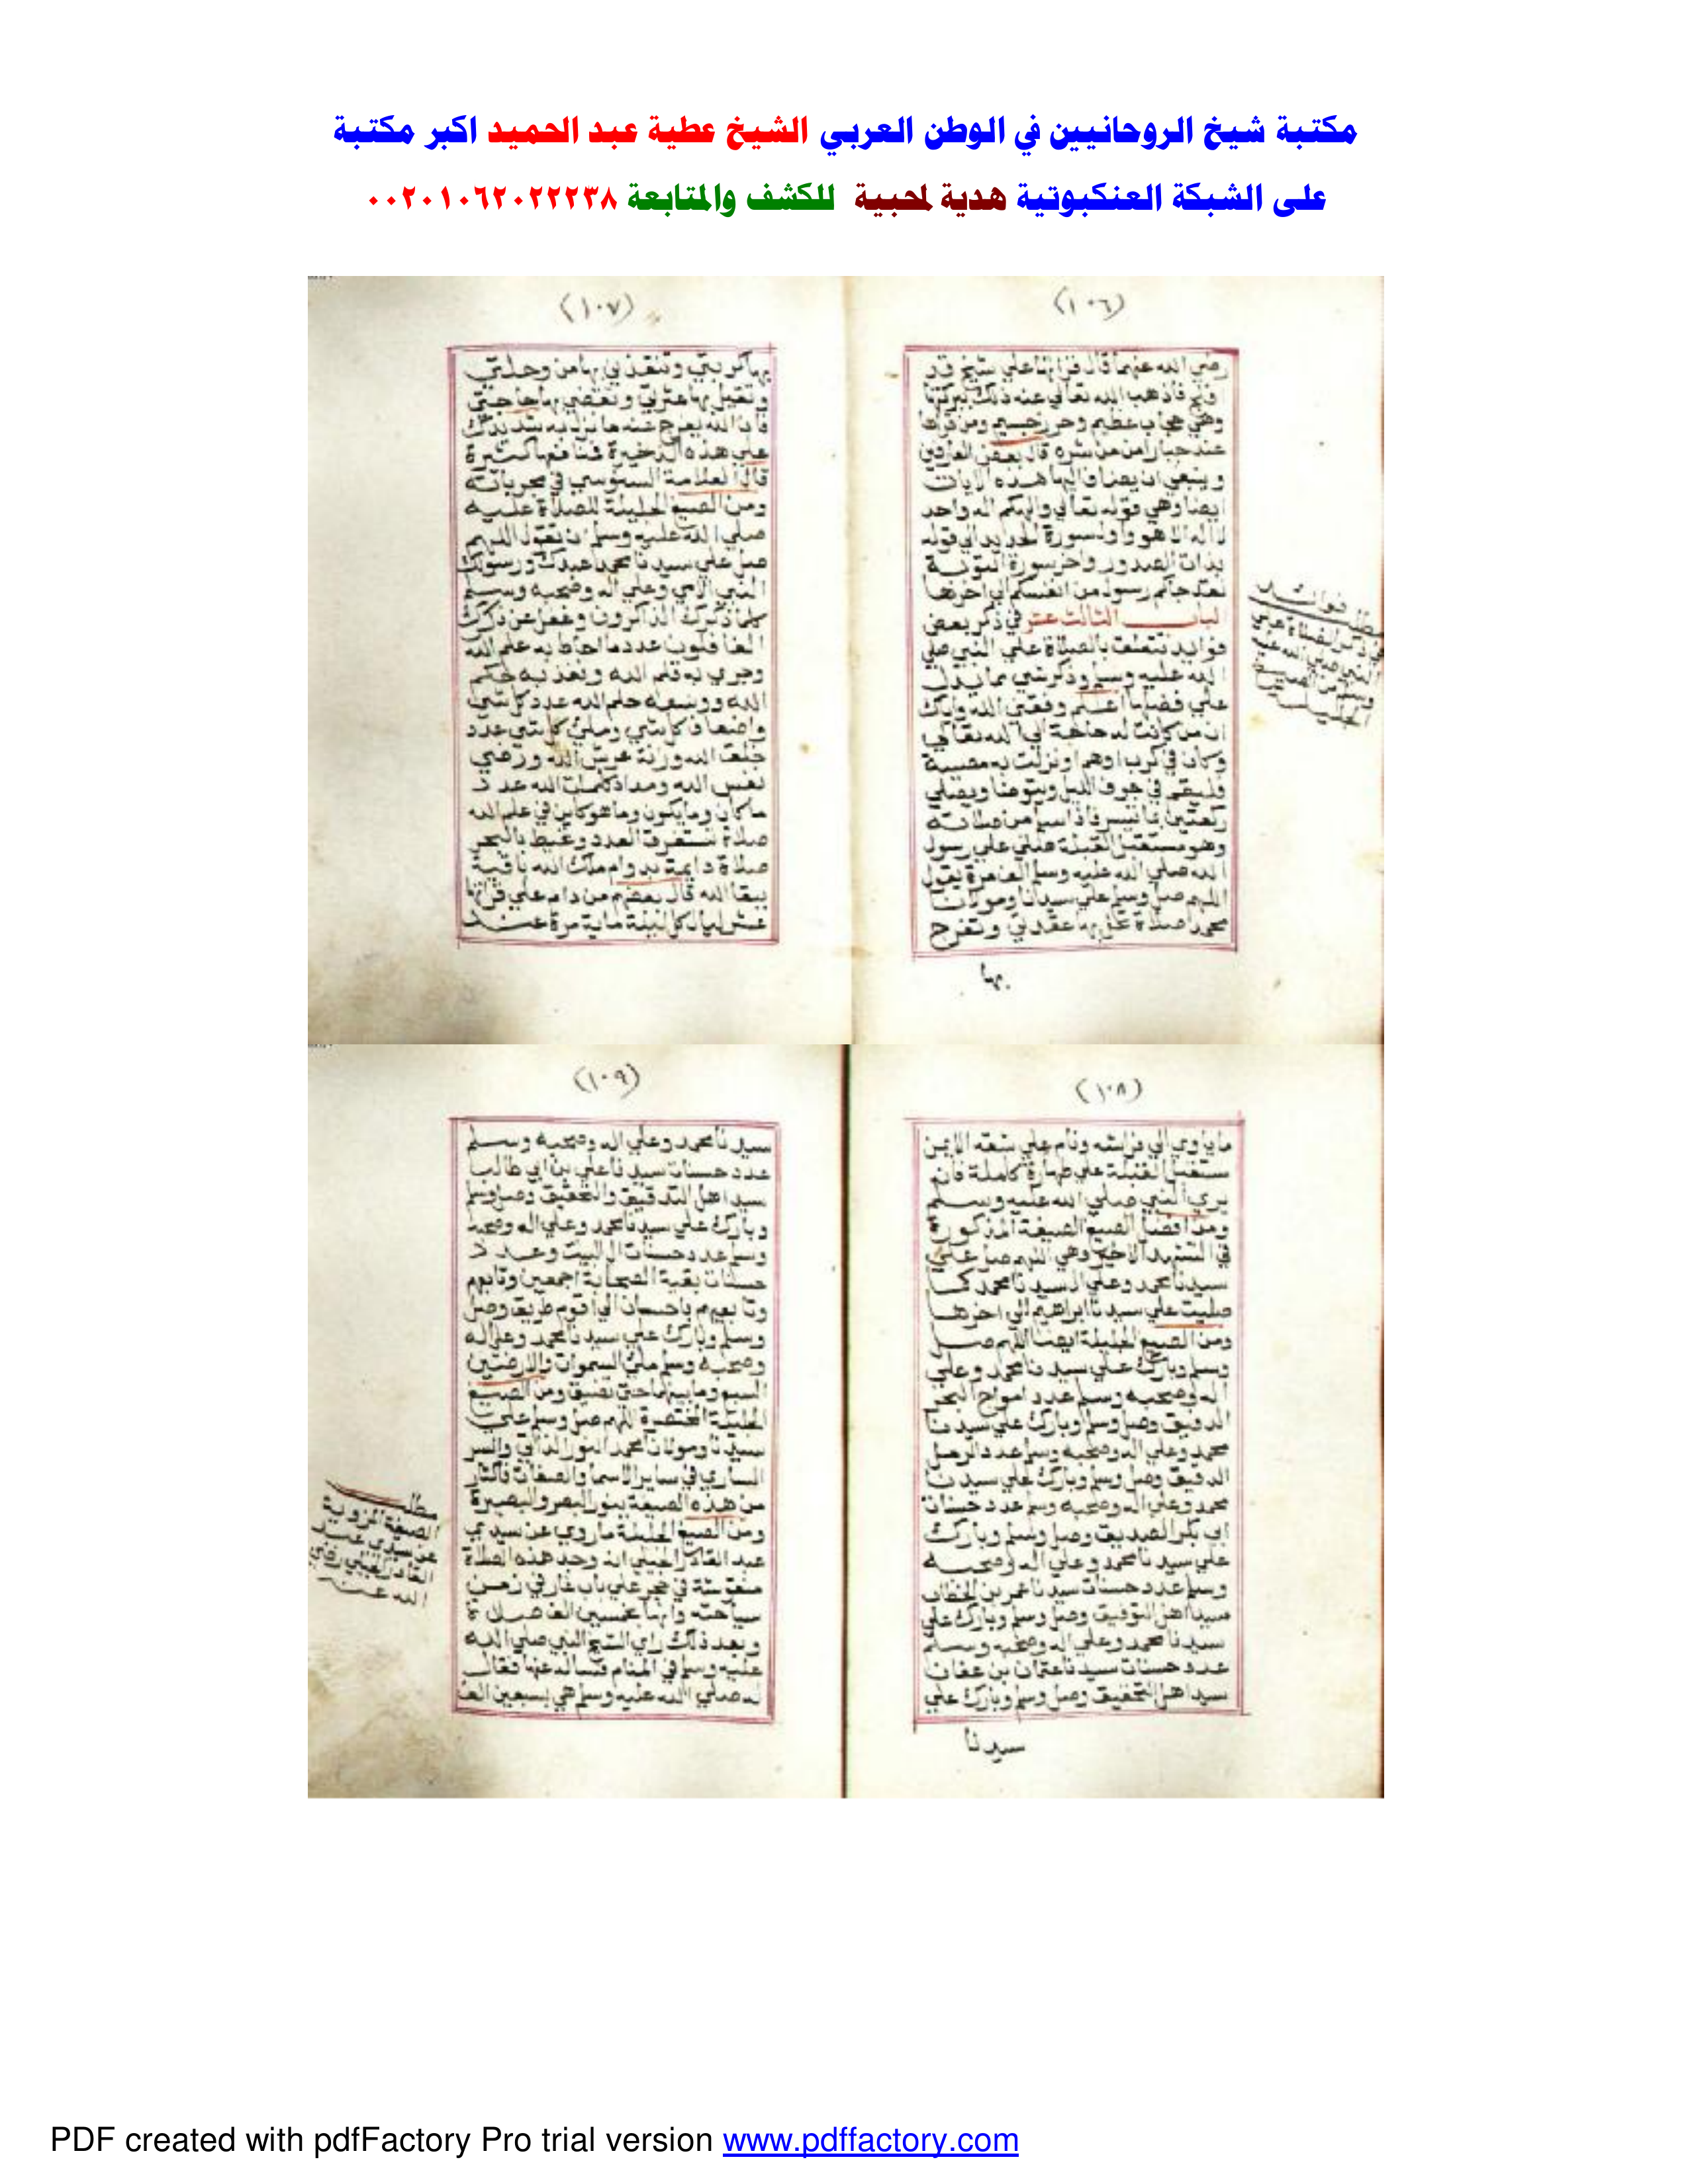 مكتبة شيخ الروحانيين في الوطن العربي الشيخ عطية عبد الحميد اكبر مكتبة
على الشبكة العنكبوتية هدية لمحبية للكشف والمتابعة ٠٠٢٠١٠٦٢٠٢٢٢٣٨
(١٠٦)
رضي الله عنهما قال قراتها علي شيخ قد
فاذهب الله تعالي عنه ذلك ببركتها
وهي حجاب عظيم وحرز جسيم ومن قراها
عند جبار امن من شره قال بعض العارفين
وينبغي ان يضاف اليها هذه الايات
ايضا وهي قوله تعالي والهكم اله واحد
لا اله الا هو واول سورة الحديد الي قوله
بذات الصدور واخر سورة التوبة
لقد جاكم رسول من انفسكم الي اخرها
لباب الثالث عشر في ذكر بعض
فوايد تتعلق بالصلاة علي النبي صلي
الله عليه وسلم وذكر شي مما يدل
علي فضلها اعلم وفقني الله واياك
ان من كانت له حاجة الي الله تعالي
وكان في كرب او هم او نزلت به مصيبة
فليقم في جوف الليل ويتوضا ويصلي
ركعتين بما تيسر فاذا سلم من صلاته
وهو مستقبل القبلة صلي علي رسول
الله صلي الله عليه وسلم الف مرة يقول
اللهم صل وسلم علي سيدنا ومولانا
محمد صلاة تحل بها عقدتي وتفرج
بها
فوائد
(١٠٧)
بها كربتي وتنقذني بها من وحلتي
وتقيل بها عثرتي وتقضي بها حاجتي
فان الله يفرج عنه ما نزل به شد يدك
علي هذه الذخيرة فمنافعها كثيرة
قال العلامة السنوسي في مجرباته
ومن الصيغ الجليلة للصلاة عليه
صلي الله عليه وسلم ان تقول اللهم
صل علي سيدنا محمد عبدك ورسولك
النبي الامي وعلي اله وصحبه وسلم
كلما ذكرك الذاكرون وغفل عن ذكرك
الغافلون عدد ما احاط به علم الله
وجري به قلم الله ونفذ به حكم
الله ووسعه حلم الله عدد كل شي
واضعاف كل شي وملئ كل شي عدد
خلق الله وزنة عرش الله ورضي
نفس الله ومداد كلمات الله عدد
ما كان وما يكون وما هو كاين في علم الله
صلاة تستغرق العدد وتحيط بالبحر
صلاة دايمة بدوام ملك الله باقية
ببقا الله قال بعضهم من دام علي قراتها
عشر ليال كل ليلة ماية مرة عند
(١٠٨)
ما ياوي الي فراشه ونام علي شقه الايمن
مستقبل القبلة علي طهارة كاملة فانه
يري النبي صلي الله عليه وسلم
ومن افضل الصيغ الصيغة المذكورة
في التشهد الاخير وهي اللهم صل علي
سيدنا محمد وعلي ال سيدنا محمد كما
صليت علي سيدنا ابراهيم الي اخرها
ومن الصيغ الجليلة ايضا اللهم صل
وسلم وبارك علي سيدنا محمد وعلي
اله وصحبه وسلم عدد امواج البحر
الدفيق وصل وسلم وبارك علي سيدنا
محمد وعلي اله وصحبه وسلم عدد الرمل
الدقيق وصل وسلم وبارك علي سيدنا
محمد وعلي اله وصحبه وسلم عدد حسنات
ابي بكر الصديق وصل وسلم وبارك
علي سيدنا محمد وعلي اله وصحبه
وسلم عدد حسنات سيدنا عمر بن الخطاب
سيد اهل التوفيق وصل وسلم وبارك علي
سيدنا محمد وعلي اله وصحبه وسلم
عدد حسنات سيدنا عثمان بن عفان
سيد اهل التحقيق وصل وسلم وبارك علي
سيدنا
(١٠٩)
سيدنا محمد وعلي اله وصحبه وسلم
عدد حسنات سيدنا علي بن ابي طالب
سيد اهل التدقيق والتحقيق وصل وسلم
وبارك علي سيدنا محمد وعلي اله وصحبه
وسلم عدد حسنات ال البيت وعدد
حسنات بقية الصحابة اجمعين وتابعهم
وتابعيهم باحسان الي اقوم طريق وصل
وسلم وبارك علي سيدنا محمد وعلي اله
وصحبه وسلم ملئ السموات والارضين
السبع وما بينهما حتي تضيق ومن الصيغ
الجليلة المختصرة اللهم صل وسلم علي
سيدنا ومولانا محمد النور الذاتي والسر
الساري في ساير الاسما والصفات فاكثار
من هذه الصيغة ينور البصر والبصيرة
ومن الصيغ الجليلة ما روي عن سيدي
عبد القادر الجيلي انه وجد هذه الصلاة
منقوشة في حجر علي باب غار في زمن
سياحته وانها بخمسين الف صلاة
وبعد ذلك راي الشيخ النبي صلي الله
عليه وسلم في المنام فساله عنها فقال
له صلي الله عليه وسلم هي بسبعين الف
مطلب
الصيغة المروية
عن سيدي عبد
القادر الجيلي رضي
الله عنه
PDF created with pdfFactory Pro trial version www.pdffactory.com